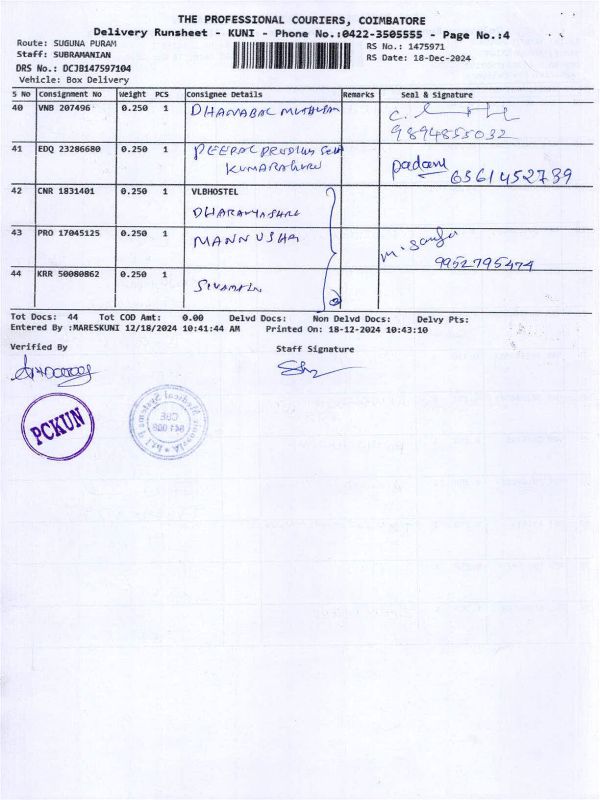 THE PROFESSIONAL COURIERS, COIMBATORE
Delivery Runsheet - KUNI - Phone No.:0422-3505555 - Page No.:4
Route: SUGUNA PURAM
RS No.: 1475971
Staff: SUBRAMANIAN
RS Date: 18-Dec-2024
DRS No.: DCJB147597104
Vehicle: Box Delivery
S No Consignment No Weight PCS Consignee Details Remarks Seal & Signature
40 VNB 207496 0.250 1 DHANABAL
9894855032
41 EDQ 23286680 0.250 1 PEEPAL
KUMARAGURU
6561452789
42 CNR 1831401 0.250 1 VLBHOSTEL
43 PRO 17045125 0.250 1 MANNUSHA
9952795474
44 KRR 50080862 0.250 1
Tot Docs: 44 Tot COD Amt: 0.00 Delvd Docs: Non Delvd Docs: Delvy Pts:
Entered By :MARESKUNI 12/18/2024 10:41:44 AM Printed On: 18-12-2024 10:43:10
Verified By
Staff Signature
PCKUN